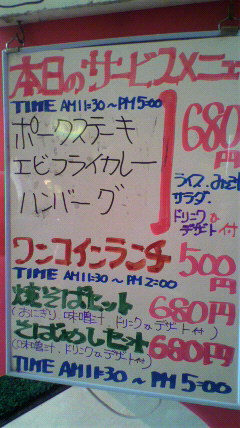 本日のサービスメニュー
TIME AM11:30~PM5:00
ポークステーキ
エビフライカレー
ハンバーグ
680円
ライス、みそ汁
サラダ、
ドリンク or
デザート付
ワンコインランチ 500円
TIME AM11:30~PM2:00
焼そばセット 680円
(おにぎり、味噌汁、ドリンク or デザート付)
そばめしセット 680円
(味噌汁、ドリンク or デザート付)
TIME AM11:30~PM5:00